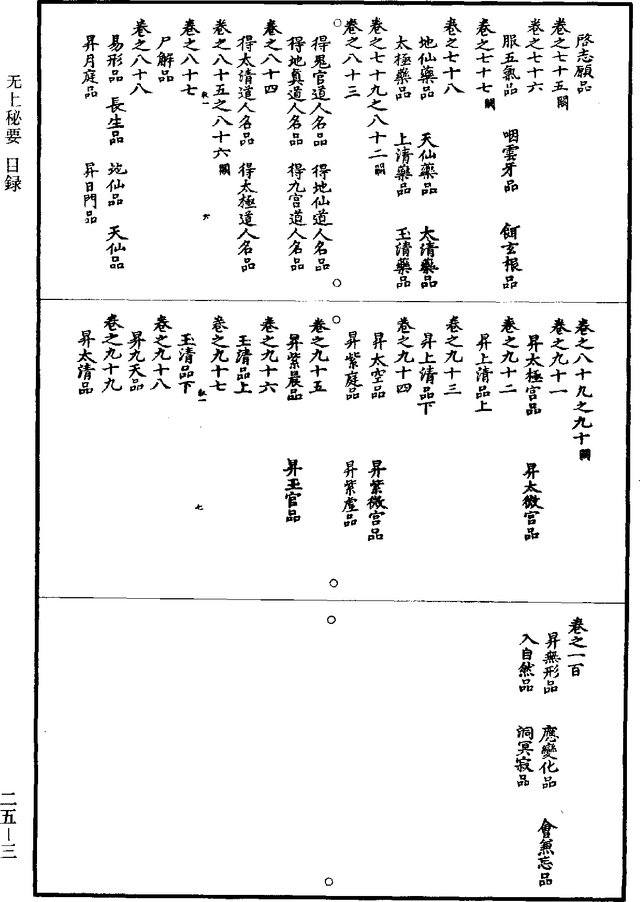 啓志願品
卷之七十五闕
卷之七十六
服五氣品　咽雲牙品　餌玄根品
卷之七十七闕
卷之七十八
地仙藥品　天仙藥品　太清藥品
太極藥品　上清藥品　玉清藥品
卷之七十九之八十二闕
卷之八十三
得鬼官道人名品　得地仙道人名品
得地真道人名品　得九宮道人名品
卷之八十四
得太清道人名品　得太極道人名品
卷之八十五之八十六闕
六
卷之八十七
尸解品
卷之八十八
易形品　長生品　地仙品　天仙品
昇月庭品　昇日門品
卷之八十九之九十闕
卷之九十一
昇太極宮品　昇太微宮品
卷之九十二
昇上清品上
卷之九十三
昇上清品下
卷之九十四
昇太空品　昇紫微宮品
昇紫庭品　昇紫虛品
卷之九十五
昇紫晨品　昇玉宮品
卷之九十六
玉清品上
卷之九十七
七
玉清品下
卷之九十八
昇九天品
卷之九十九
昇太清品
卷之一百
昇無形品　應變化品　會兼忘品
入自然品　洞冥寂品
无上秘要 目録
二五—三